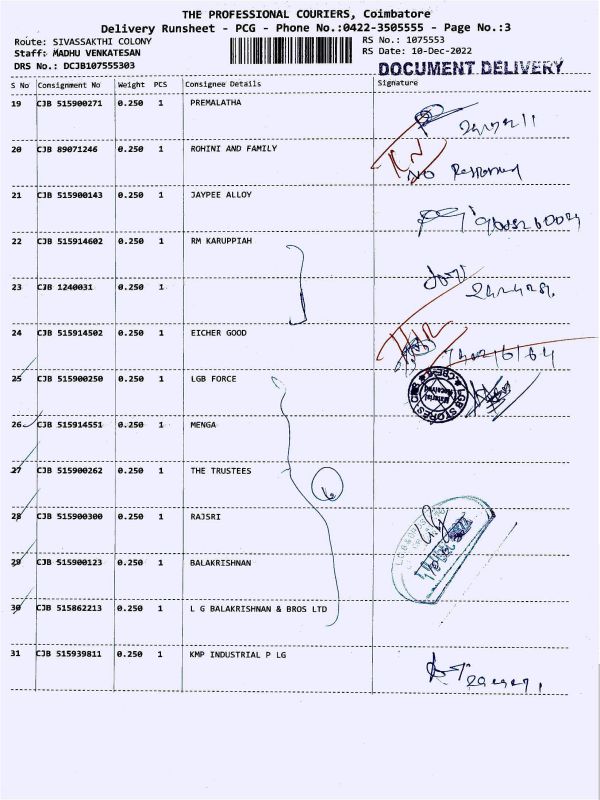 THE PROFESSIONAL COURIERS, Coimbatore
Delivery Runsheet - PCG - Phone No.:0422-3505555 - Page No.:3
Route: SIVASSAKTHI COLONY
Staff: MADHU VENKATESAN
DRS No.: DCJB107555303
RS No.: 1075553
RS Date: 10-Dec-2022
DOCUMENT DELIVERY
S No Consignment No Weight PCS Consignee Details Signature
19 CJB 515900271 0.250 1 PREMALATHA
20 CJB 89071246 0.250 1 ROHINI AND FAMILY
NO
21 CJB 515900143 0.250 1 JAYPEE ALLOY
22 CJB 515914602 0.250 1 RM KARUPPIAH
23 CJB 1240031 0.250 1
24 CJB 515914502 0.250 1 EICHER GOOD
25 CJB 515900250 0.250 1 LGB FORCE
LGB STORES
Material Received
26 CJB 515914551 0.250 1 MENGA
27 CJB 515900262 0.250 1 THE TRUSTEES
6
28 CJB 515900300 0.250 1 RAJSRI
29 CJB 515900123 0.250 1 BALAKRISHNAN
30 CJB 515862213 0.250 1 L G BALAKRISHNAN & BROS LTD
31 CJB 515939811 0.250 1 KMP INDUSTRIAL P LG